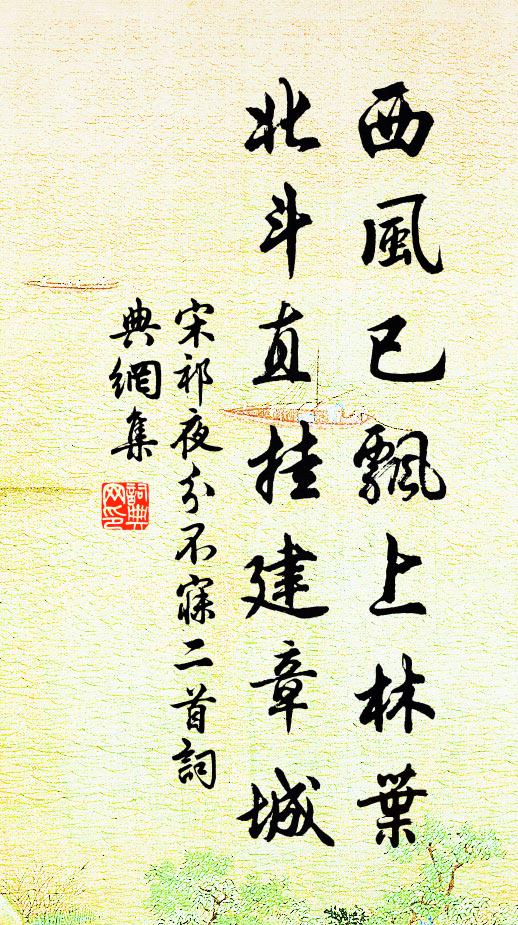 西風已飄上林葉
北斗直挂建章城
宋祁夜分不寐二首詞
典網集
詞典網印